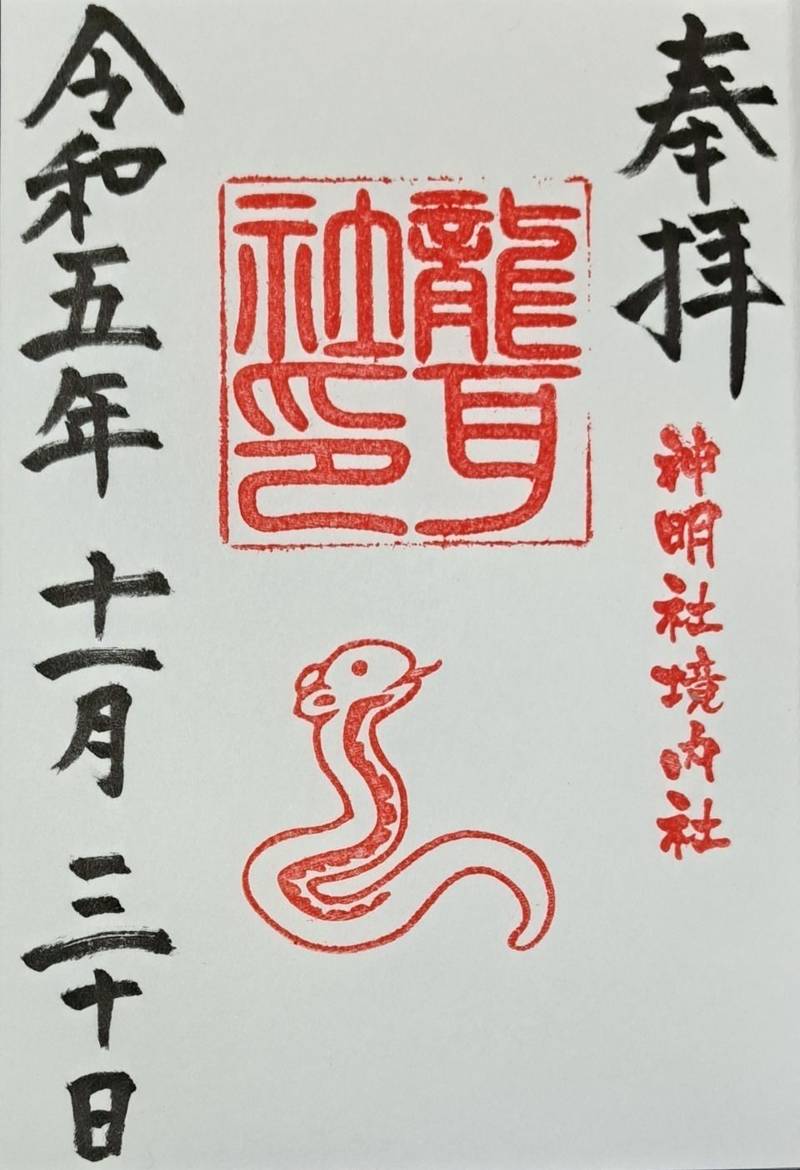 奉拝
神明社境内社
龍耳
社印
令和五年十一月三十日